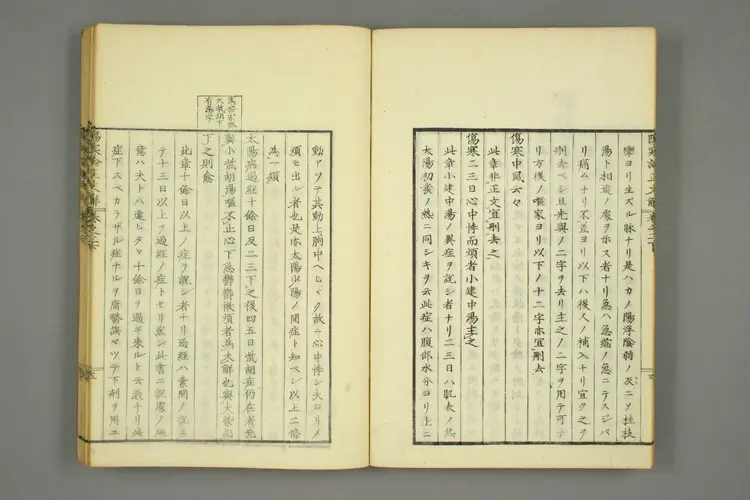 攣ヨリ生ズル脉ナリ是ハカノ陽浮陰弱ノ及ニヲ桂枝
湯ト相違ノ處ヲ示ス者ナリ急ハ急縮ノ急ニテスジバ
リ痛ムナリ不差ヨリ以下ハ後人ノ補入ナリ宜ク之ヲ
刪去ベシ且先與ノ二字ヲ去リ主之ノ二字ヲ用テ可ナ
リ方後ノ嘔家ヨリ以下ノ十二字亦宜刪去
傷寒中風云々
此章非正文宜刪去之
傷寒二三日心中悸而煩者小建中湯主之
此章小建中湯ノ異症ヲ説シ者ナリ二三日ハ肌表ノ熱
太陽初發ノ熱ニ同シキヲ云此症ハ腹部水分ヨリ上ニ
動アツテ其動上胸中ヘヒヾク故ニ心中悸シ夫ヨリメ
煩モ出ル者也是亦太陽少陽ノ間症ト知ベシ以上二條
為一類
太陽病過経十餘日及二三下之後四五日柴胡症仍在者先
與小柴胡湯嘔不止心下急鬱鬱微煩者為未解也與大柴胡
下之則愈
此章十餘日以上ノ症ヲ説シ者ナリ過経ハ素問ノ
テ十三日以上ヲ過経ノ症トセリ然シ此書ニ説處ノ
意ハ夫トハ違ヒタヾ十餘日ヲ過ギ来ルト云義ナリ此
症下スベカラザル症ナルヲ庸醫誤マツテ下剤ヲ用ヰ
大柴胡下
有湯字